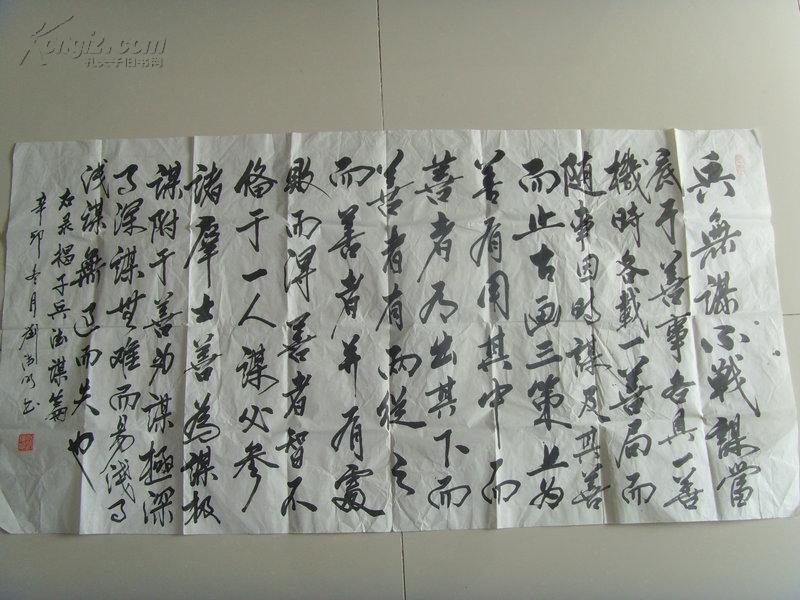 兵無謀不戰謀當
底于善事各具一善
機時各載一善局而
随事因時謀及其善
而止古画三策上为
善有用其中而
善者乃出其下而
善者有两從之
而善者并有處
敗而得善者智不
备于一人謀必参
諸群士善為謀极
謀附于善为謀極深
了深謀無难而易浅了
浅謀無遗而失也
右录揭子兵法謀篇
辛卯冬月
Kongfz.com
孔夫子旧书网